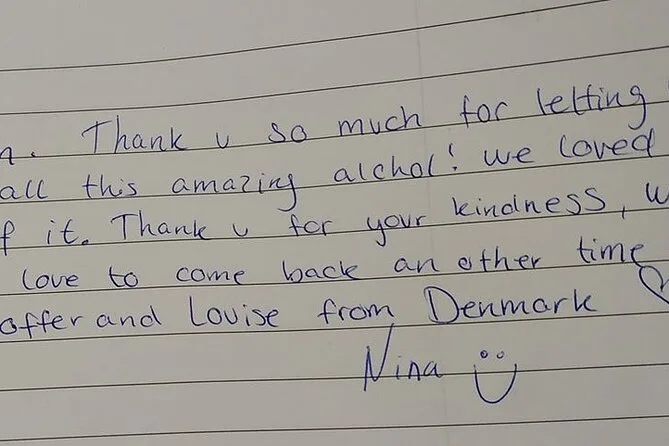 n. Thank u so much for letting
all this amazing alchol! we loved
f it. Thank u for your kindness, w
love to come back an other time
offer and Louise from Denmark ♡
Nina ü